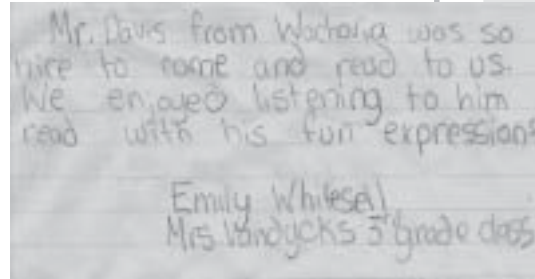 Mr. Davis from Wachovia was so
nice to come and read to us.
We enjoyed listening to him
read with his fun expressions
Emily Whitesell
Mrs Vandycks 3rd grade class